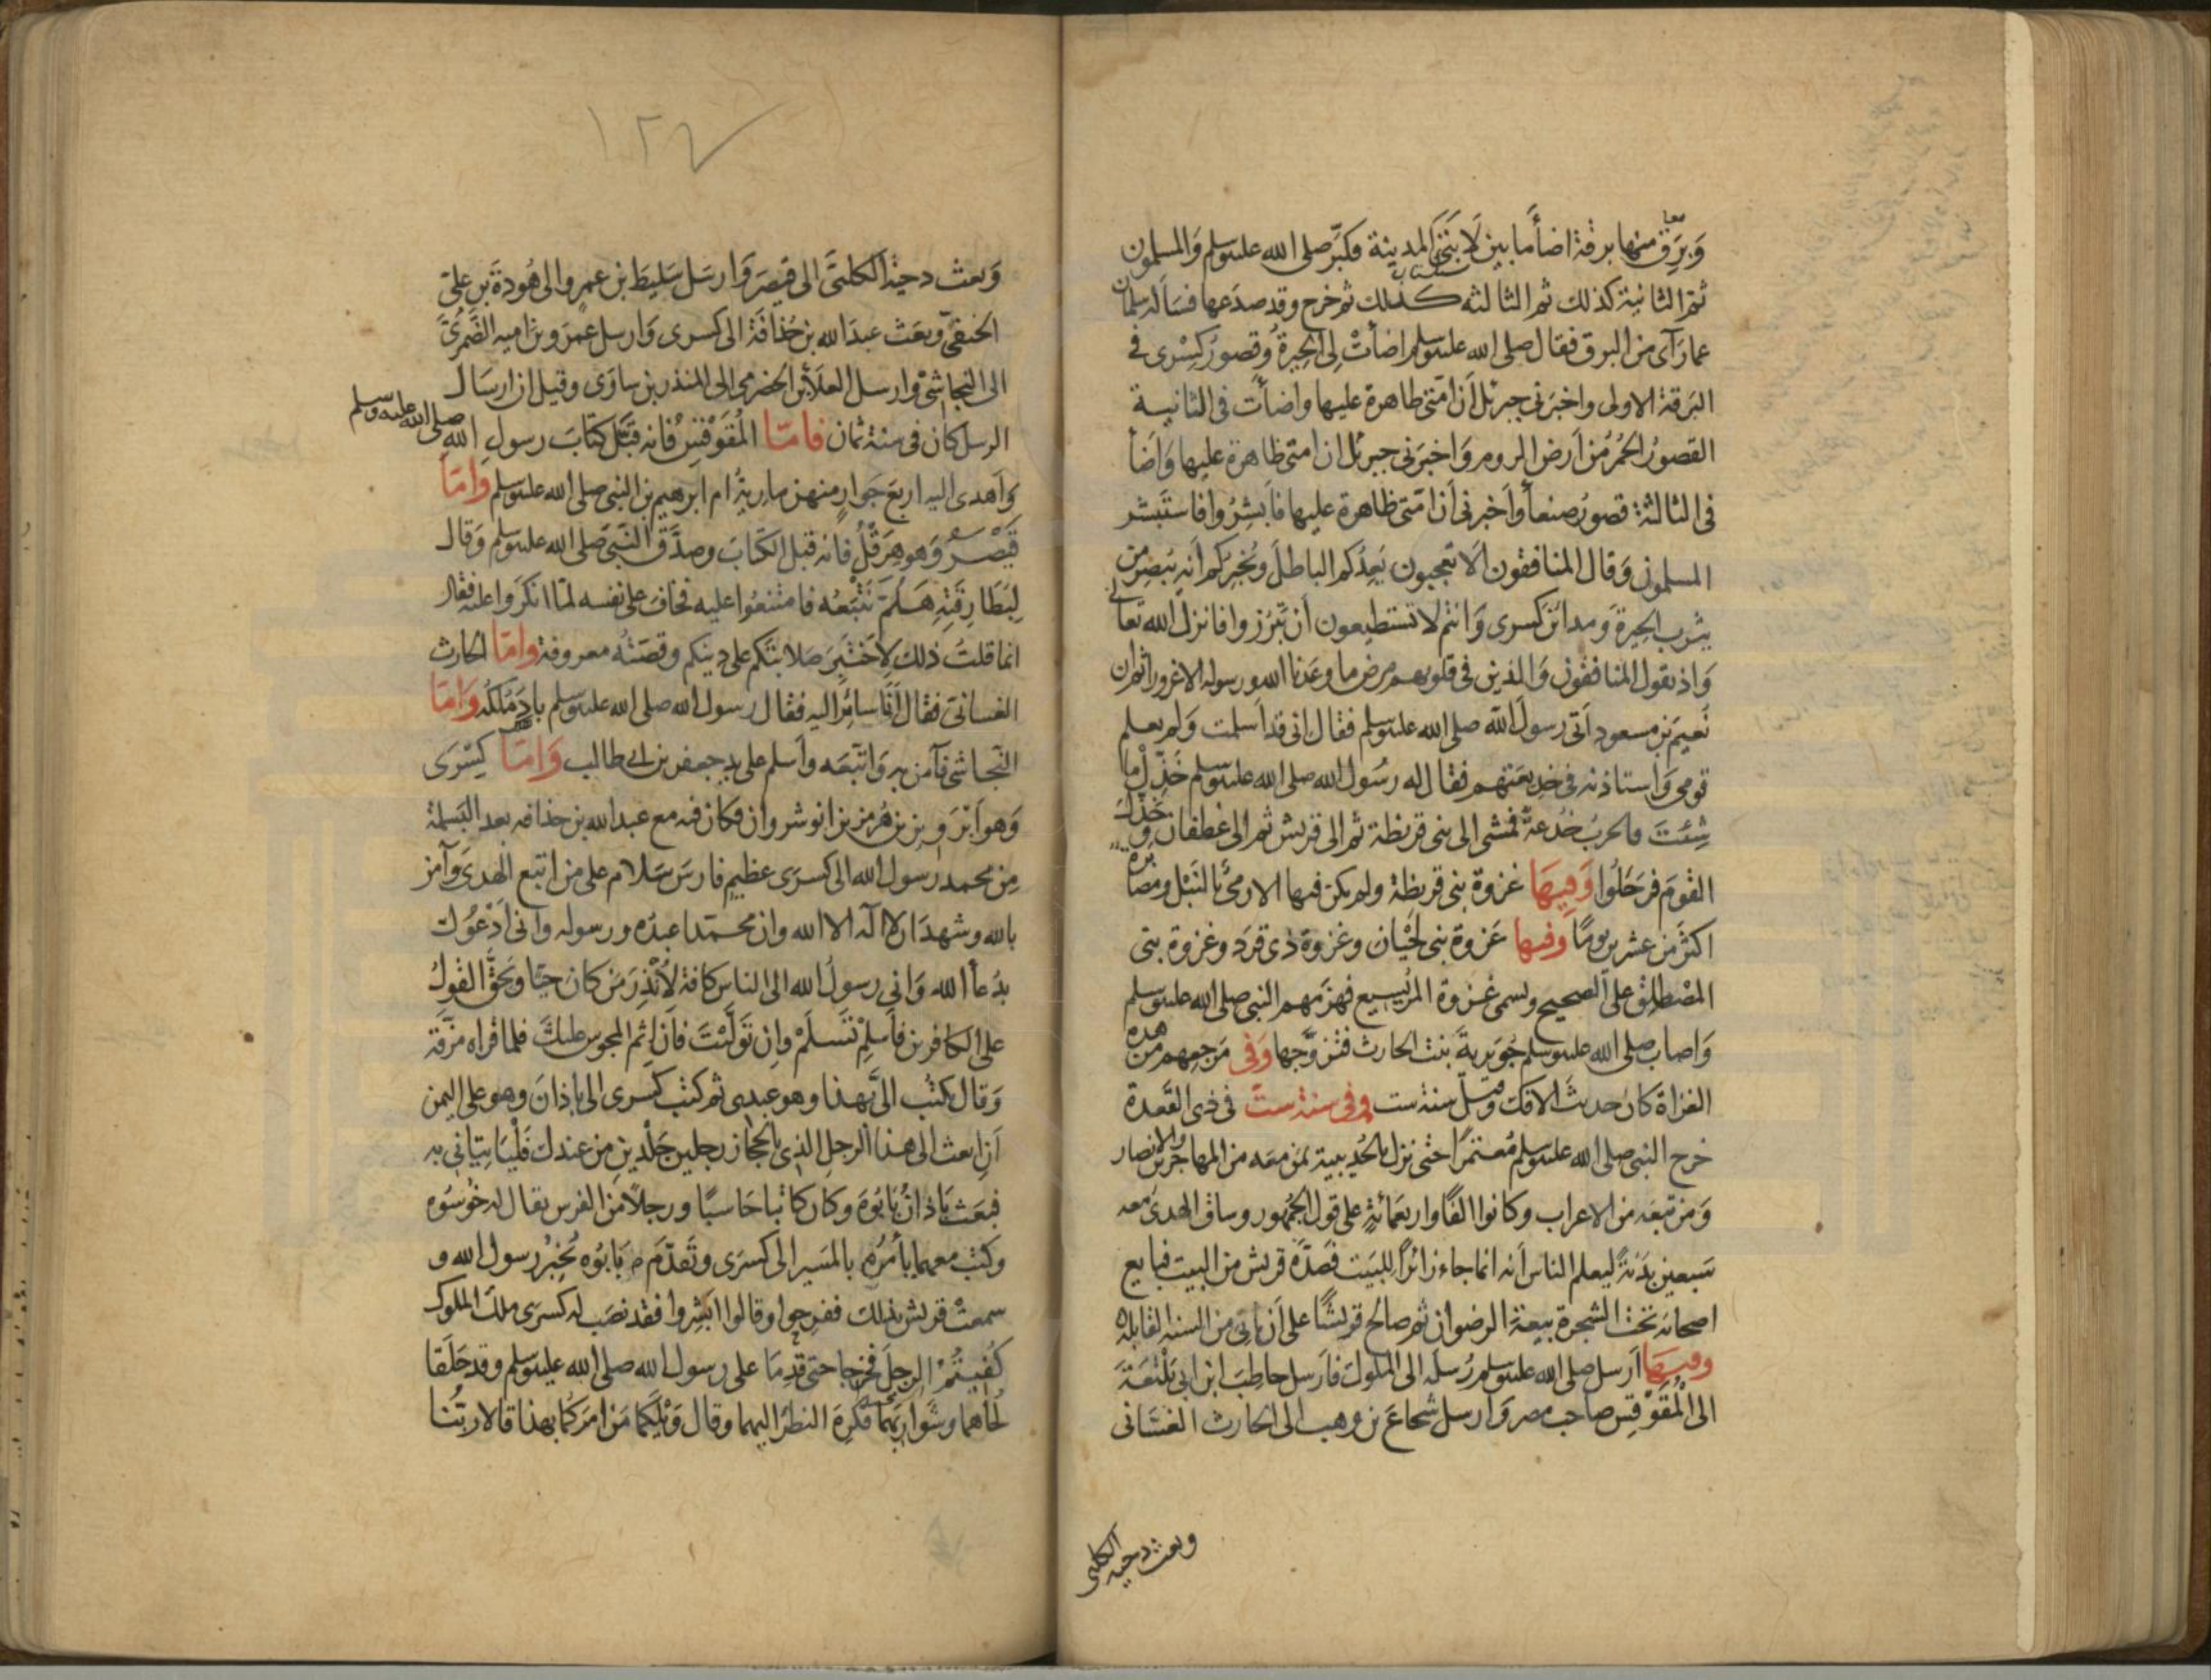 وَبَرَق منها برقة اضأ ما بين لَابَتَي المدينة فكبّر صلى الله عليه وسلم وَالمسلمون
ثم الثانية كذلك ثم الثالثه كذلك ثم خرج وقد صدعها فسَأله سلمان
عما رَآى من البرق فقال صلى الله عليه وسلم اضأتْ لى الحِيرةُ وَقصورُ كِسْرى في
البَرقة الاولى واخبَرَنى جبرئل أن امّتى ظاهرة عليها واضأت فى الثانيسة
القصورُ الحُمُرُ من اَرض الروم وَاخبَرَنى جبرئل ان امتى ظاهرة عليها وَاضأ
فى الثالثة قصورُ صنعأ وَأخبرنى أن امّتى ظاهرة عليها فأبشِرُوا فاستَبشر
المسلمون وَقال المنافقون ألا تعجبون يَعِدُكم الباطلَ ويُخبركم أنه يُبصِر من
يثرب الحِيرةَ وَمدائنَ كسرى وَانتم لا تستطيعون أن تَبْرُزوا فانزل الله تعالى
وَاذ يقول المنافقون وَالذين فى قلوبهم مرض ما وعَدنا الله ورسوله الا غرورا ثم ان
نُعيم بن مسعود أتى رسول الله صلى الله عليه وسلم فقال انى قد أسلمت وَلم يعلم
قومى وَاستاذنه فى خديعَتهم فقال له رسُول الله صلى الله عليه وسلم خَذِّلْ ما
شِئتَ فالحربُ خُدعةٌ فمشى الى بنى قريظة ثم الى قريش ثم الى غطفان وخَذَّل
القومَ فرَحَلُوا وَفيهَا غزوة بنى قريظة ولم يكن فيها الا رمىٌ بالنَبْل ومصابرة
اكثرَ من عشرين يومًا وفيها غَزوة بنى لِحْيان وغزوة ذى قَرَد وغزوة بنى
المصْطلِق على الصحيح وتسمى غزوة المُرَيسيع فهزَمهم النبى صلى الله عليه وسلم
وَاصاب صلى الله عليه وسلم جُوَيريةَ بنت الحارث فتزوَّجها وَفى مَرجعهم من هذه
الغزاة كان حديثُ الافك وقيل سنة ست وفى سنة ستّ فى ذى القَعدة
خرج النبى صلى الله عليه وسلم مُعتمرًا حتى نزل بالحُديبية بمن معَه من المهاجرين والانصار
وَمن تبعَه من الاعراب وكانوا الفًا واربعَمائةٍ على قول الجُمهور وساق الهدىَ معه
سَبعين بَدَنةً ليعلم الناس أنه انما جاء زائرًا للبَيت فصَدّه قريش من البيت فبايع
اصحابه تحت الشجرة بيعة الرضوان ثم صالح قريشًا على أن ياتى من السنه القابله
وفيهَا أرسل صلى الله عليه وسلم رُسلَه الى الملوك فأرسل حاطِبَ ابن ابى بَلْتعَةَ
الى المُقَوْقِس صاحب مصر وَارسل شجاعَ بن وهب الى الحارث الغسّانى
وبعث دحيه الكلبى
وَبعث دحية الكلبىَّ الى قيصَرَ وَارسَل سَليطَ بن عمرو الى هُودةَ بن على
الحنفىّ وبعَث عبدَ الله بن حُذافَة الى كسرى وَارسل عمَرو بن اميه الضَّمرِىَّ
الى النجاشى وارسل العلَأ بن الحضرمى الى المنذر بن ساوَى وقيل ان ارسَال
الرسل كان فى سنة ثمان فامّا المُقَوْقِسُ فانه قبَّل كتابَ رسول الله صلى الله عليه وسلم
وَاَهدى اليه اربعَ جَوارٍ منهن مارية ام ابرهيم بن النبى صلى الله عليه وسلم وَامّا
قَيْصرُ وَهو هِرَقْلُ فانه قبل الكتابَ وصدَّق النَّبىَّ صلى الله عليه وسلم وَقال
لِبَطَارِقتِهِ هَلُمَّ نَتَّبَعُه فامتنعُوا عليه فخافَ على نفسه لمّا انكَروا علَيه فقال
انما قلتُ ذلك لأَختَبِرَ صَلابتَكم على دينكم وقصَتهُ معروفة وامّا الحارث
الغسانىّ فقال أنا سائرٌ اليه فقال رسول الله صلى الله عليه وسلم بادَ مُلكه وَامّا
النّجاشى فآمن به وَاتّبعَه وأسلم على يد جعفر بن ابى طالب وَامّا كِسْرَى
وَهو اَبْرَوِيزبن هُرمز بن انوشروان فكان فيه مع عبد الله بن حذافه بعد البَسملة
مِن محمد رسول الله الى كسرَى عظيم فارسَ سَلام على من اتبع الهدى وَآمن
بالله وشهدَ ان لا اله الا الله وان محمّدا عبدُه ورسوله وأنى أدْعُوك
بدُعأ الله وَانى رسولُ الله الى الناس كافة لأُنْذِرَ مَن كان حيّا ويَحِقَّ القولُ
على الكافرين فأَسلِمْ تَسلَمْ وان تَوَلَّيْتَ فاَن اثم المجوس عليك فلما قراه مزّقه
وَقال يَكتُب الىَّ بهذا وهو عبدى ثم كتب كسرى الى باذانَ وهو على اليمن
أنِ ابعث الى هذا الرجل الذى بالحجاز رجلين جَلْدين من عندك فَلْيَاتِيَانى به
فبعَث بَاذانُ بَابُوَهَ وكان كاتبا حَاسبًا ورجلًا من الفرس يقال له خُرْسَوه
وكتب معهما يأمرُه بالمسَير الى كسرَى وتَقدَّم بَابوَه يُخبِرُ رسول الله و
سمعتْ قريش بذلك ففرحوا وقالوا ابشِروا فقد نصَب له كسرَى ملك الملوك
كُفيتُمْ الرجلَ فخرجا حتى قدِمَا على رسول الله صلى الله عليه وسلم وقد حَلَقا
لُحاهما وشوَاربَهما فكَرِهَ النظرَ اليهما وقال وَيْلَكما مَن امَركما بهذا قالا ربُّنا